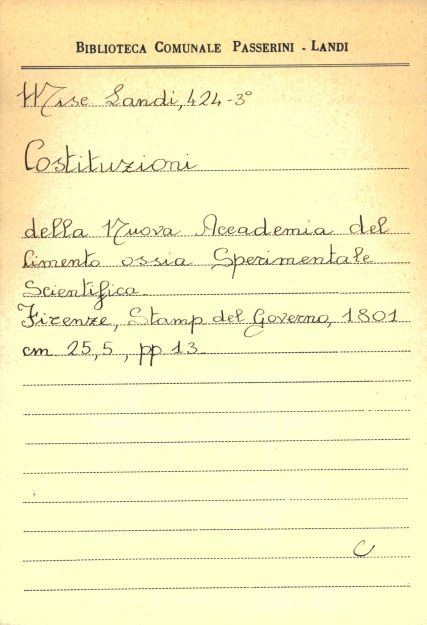 BIBLIOTECA COMUNALE PASSERINI - LANDI
Misc Landi, 424-3°
Costituzioni
della Nuova Accademia del
Cimento ossia Sperimentale
Scientifica.
Firenze, Stamp del Governo, 1801
cm 25,5, pp 13.
C